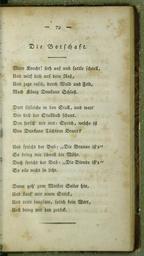 — 79 —
Die Botschaft.
Mein Knecht! steh auf und sattle schnell,
Und wirf dich auf dein Roß,
Und jage rasch, durch Wald und Feld,
Nach König Dunkans Schloß.
Dort schleiche in den Stall, und wart'
Bis dich der Stallbub schaut.
Den forsch' mir aus: Sprich, welche ist
Von Dunkans Töchtern Braut?
Und spricht der Bub: „Die Braune ist's"
So bring mir schnell die Mähr.
Doch spricht der Bub: „Die Blonde ist's"
So eilt nicht so sehr.
Dann geh' zum Meister Seiler hin,
Und kauf mir einen Strick,
Und reite langsam, sprich kein Wort,
Und bring mir den zurück.